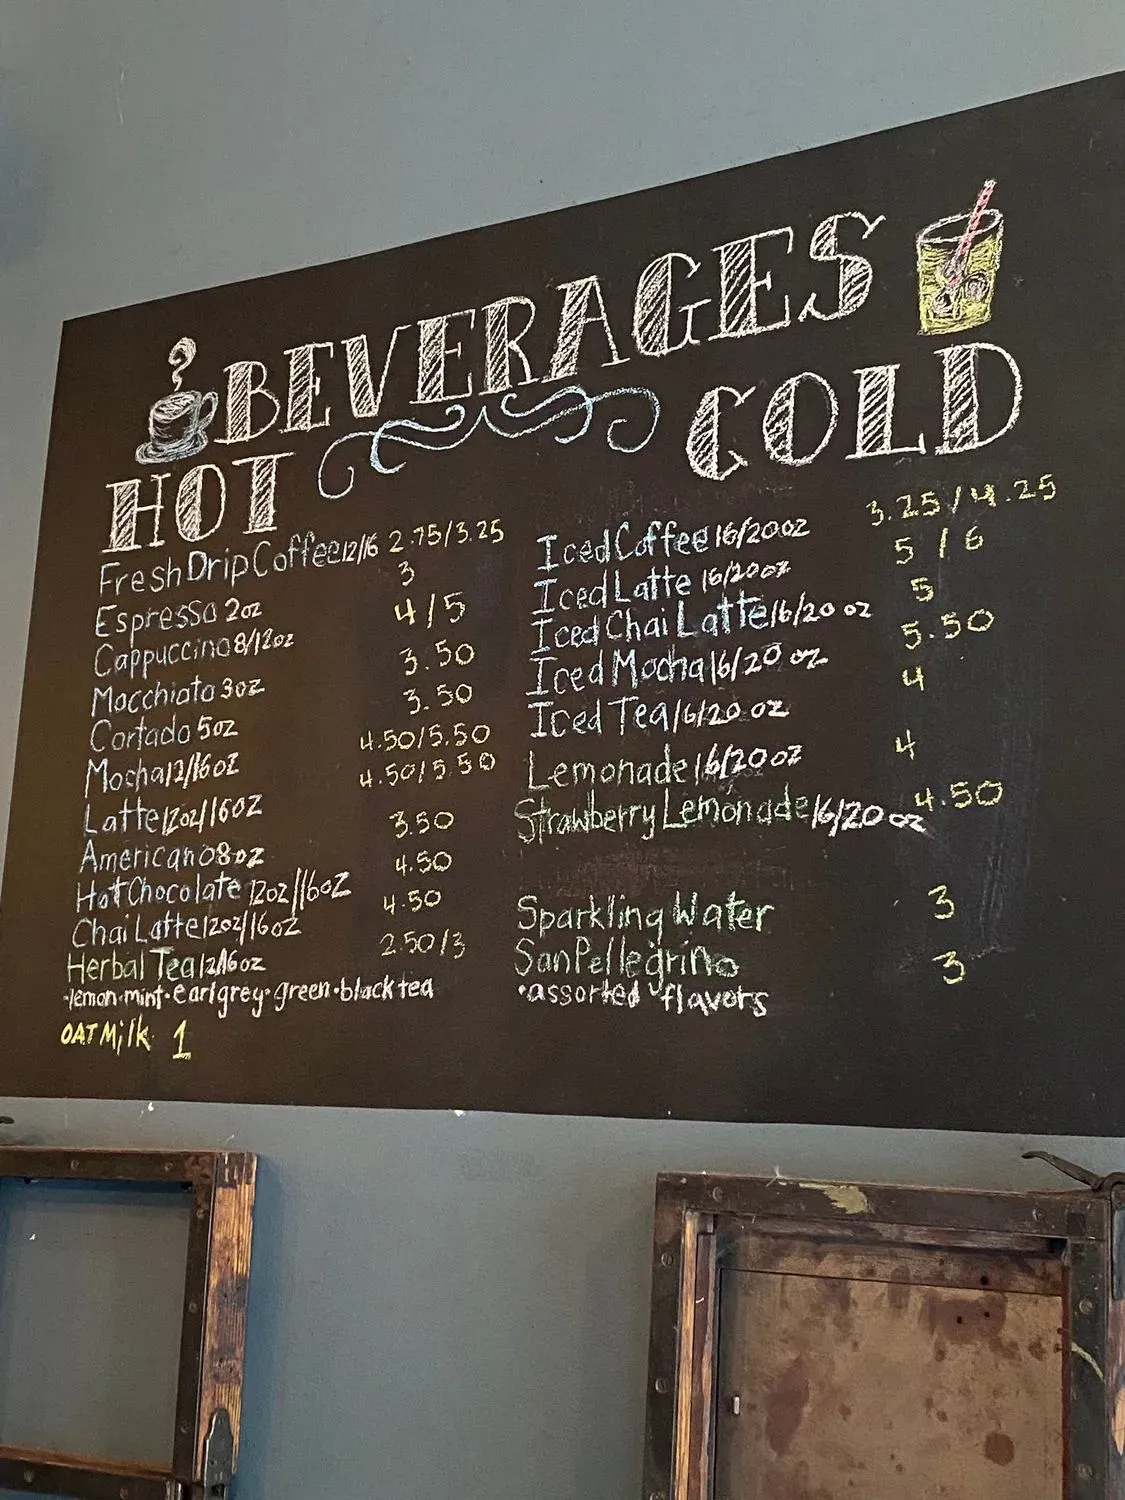 BEVERAGES
HOT
Fresh Drip Coffee 12/16 2.75/3.25
Espresso 2oz 3
Cappuccino 8/12oz 4/5
Macchiato 3oz 3.50
Cortado 5oz 3.50
Mocha 12/16oz 4.50/5.50
Latte 12oz/16oz 4.50/5.50
Americano 8oz 3.50
Hot Chocolate 12oz/16oz 4.50
Chai Latte 12oz/16oz 4.50
Herbal Tea 12/16oz 2.50/3
·lemon·mint·earl grey·green·black tea
OAT Milk 1
COLD
Iced Coffee 16/20oz 3.25/4.25
Iced Latte 16/20oz 5/6
Iced Chai Latte 16/20oz 5
Iced Mocha 16/20oz 5.50
Iced Tea 16/20oz 4
Lemonade 16/20oz 4
Strawberry Lemonade 16/20oz 4.50
Sparkling Water 3
San Pellegrino 3
·assorted flavors